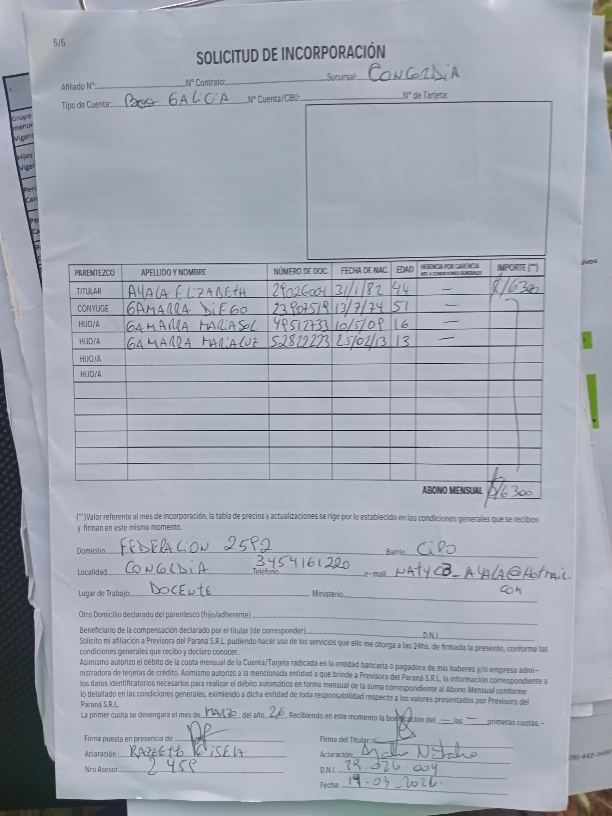 6/6
SOLICITUD DE INCORPORACIÓN
Afiliado Nº: Nº Contrato: Sucursal: CONCORDIA
Tipo de Cuenta: GALICIA Nº Cuenta/CBU: Nº de Tarjeta:
PARENTEZCO APELLIDO Y NOMBRE NÚMERO DE DOC. FECHA DE NAC. EDAD VIGENCIA POR CARENCIA IMPORTE (**)
TITULAR AYALA ELIZABETH 29026004 31/1/82 44 — $16300
CÓNYUGE GAMARRA DIEGO 23907519 13/7/74 51 —
HIJO/A GAMARRA MARIASOL 49512733 10/5/09 16 —
HIJO/A GAMARRA MARIALUZ 52812223 25/02/13 13 —
HIJO/A
HIJO/A
ABONO MENSUAL $16300
(**)Valor referente al mes de incorporación, la tabla de precios y actualizaciones se rige por lo establecido en las condiciones generales que se reciben
y firman en este mismo momento.
Domicilio FEDERACION 2592 Barrio CIPO
Localidad CONCORDIA Teléfono 3454161220 e-mail NATYCB_AYALA@Hotmail.
com
Lugar de Trabajo: DOCENTE Ministerio
Otro Domicilio declarado del parentesco (hijo/adherente)
Beneficiario de la compensación declarado por el titular (de corresponder) D.N.I.
Solicito mi afiliación a Previsora del Paraná S.R.L. pudiendo hacer uso de los servicios que ello me otorga a las 24hs. de firmada la presente, conforme las
condiciones generales que recibo y declaro conocer.
Asimismo autorizo el débito de la cuota mensual de la Cuenta/Tarjeta radicada en la entidad bancaria o pagadora de mis haberes y/o empresa admi-
nistradora de tarjetas de crédito. Asimismo autorizo a la mencionada entidad a que brinde a Previsora del Paraná S.R.L. la información correspondiente a
los datos identificatorios necesarios para realizar el débito automático en forma mensual de la suma correspondiente al Abono Mensual conforme
lo detallado en las condiciones generales, eximiendo a dicha entidad de toda responsabilidad respecto a los valores presentados por Previsora del
Paraná S.R.L.
La primer cuota se devengara el mes de MARZO del año 26. Recibiendo en este momento la bonificación del — las — primeras cuotas.-
Firma puesta en presencia de Firma del Titular
Aclaración GISELA Aclaración: Ayala Natalia
Nro Asesor 2459 D.N.I. 29.026.004
Fecha 19-03-2026